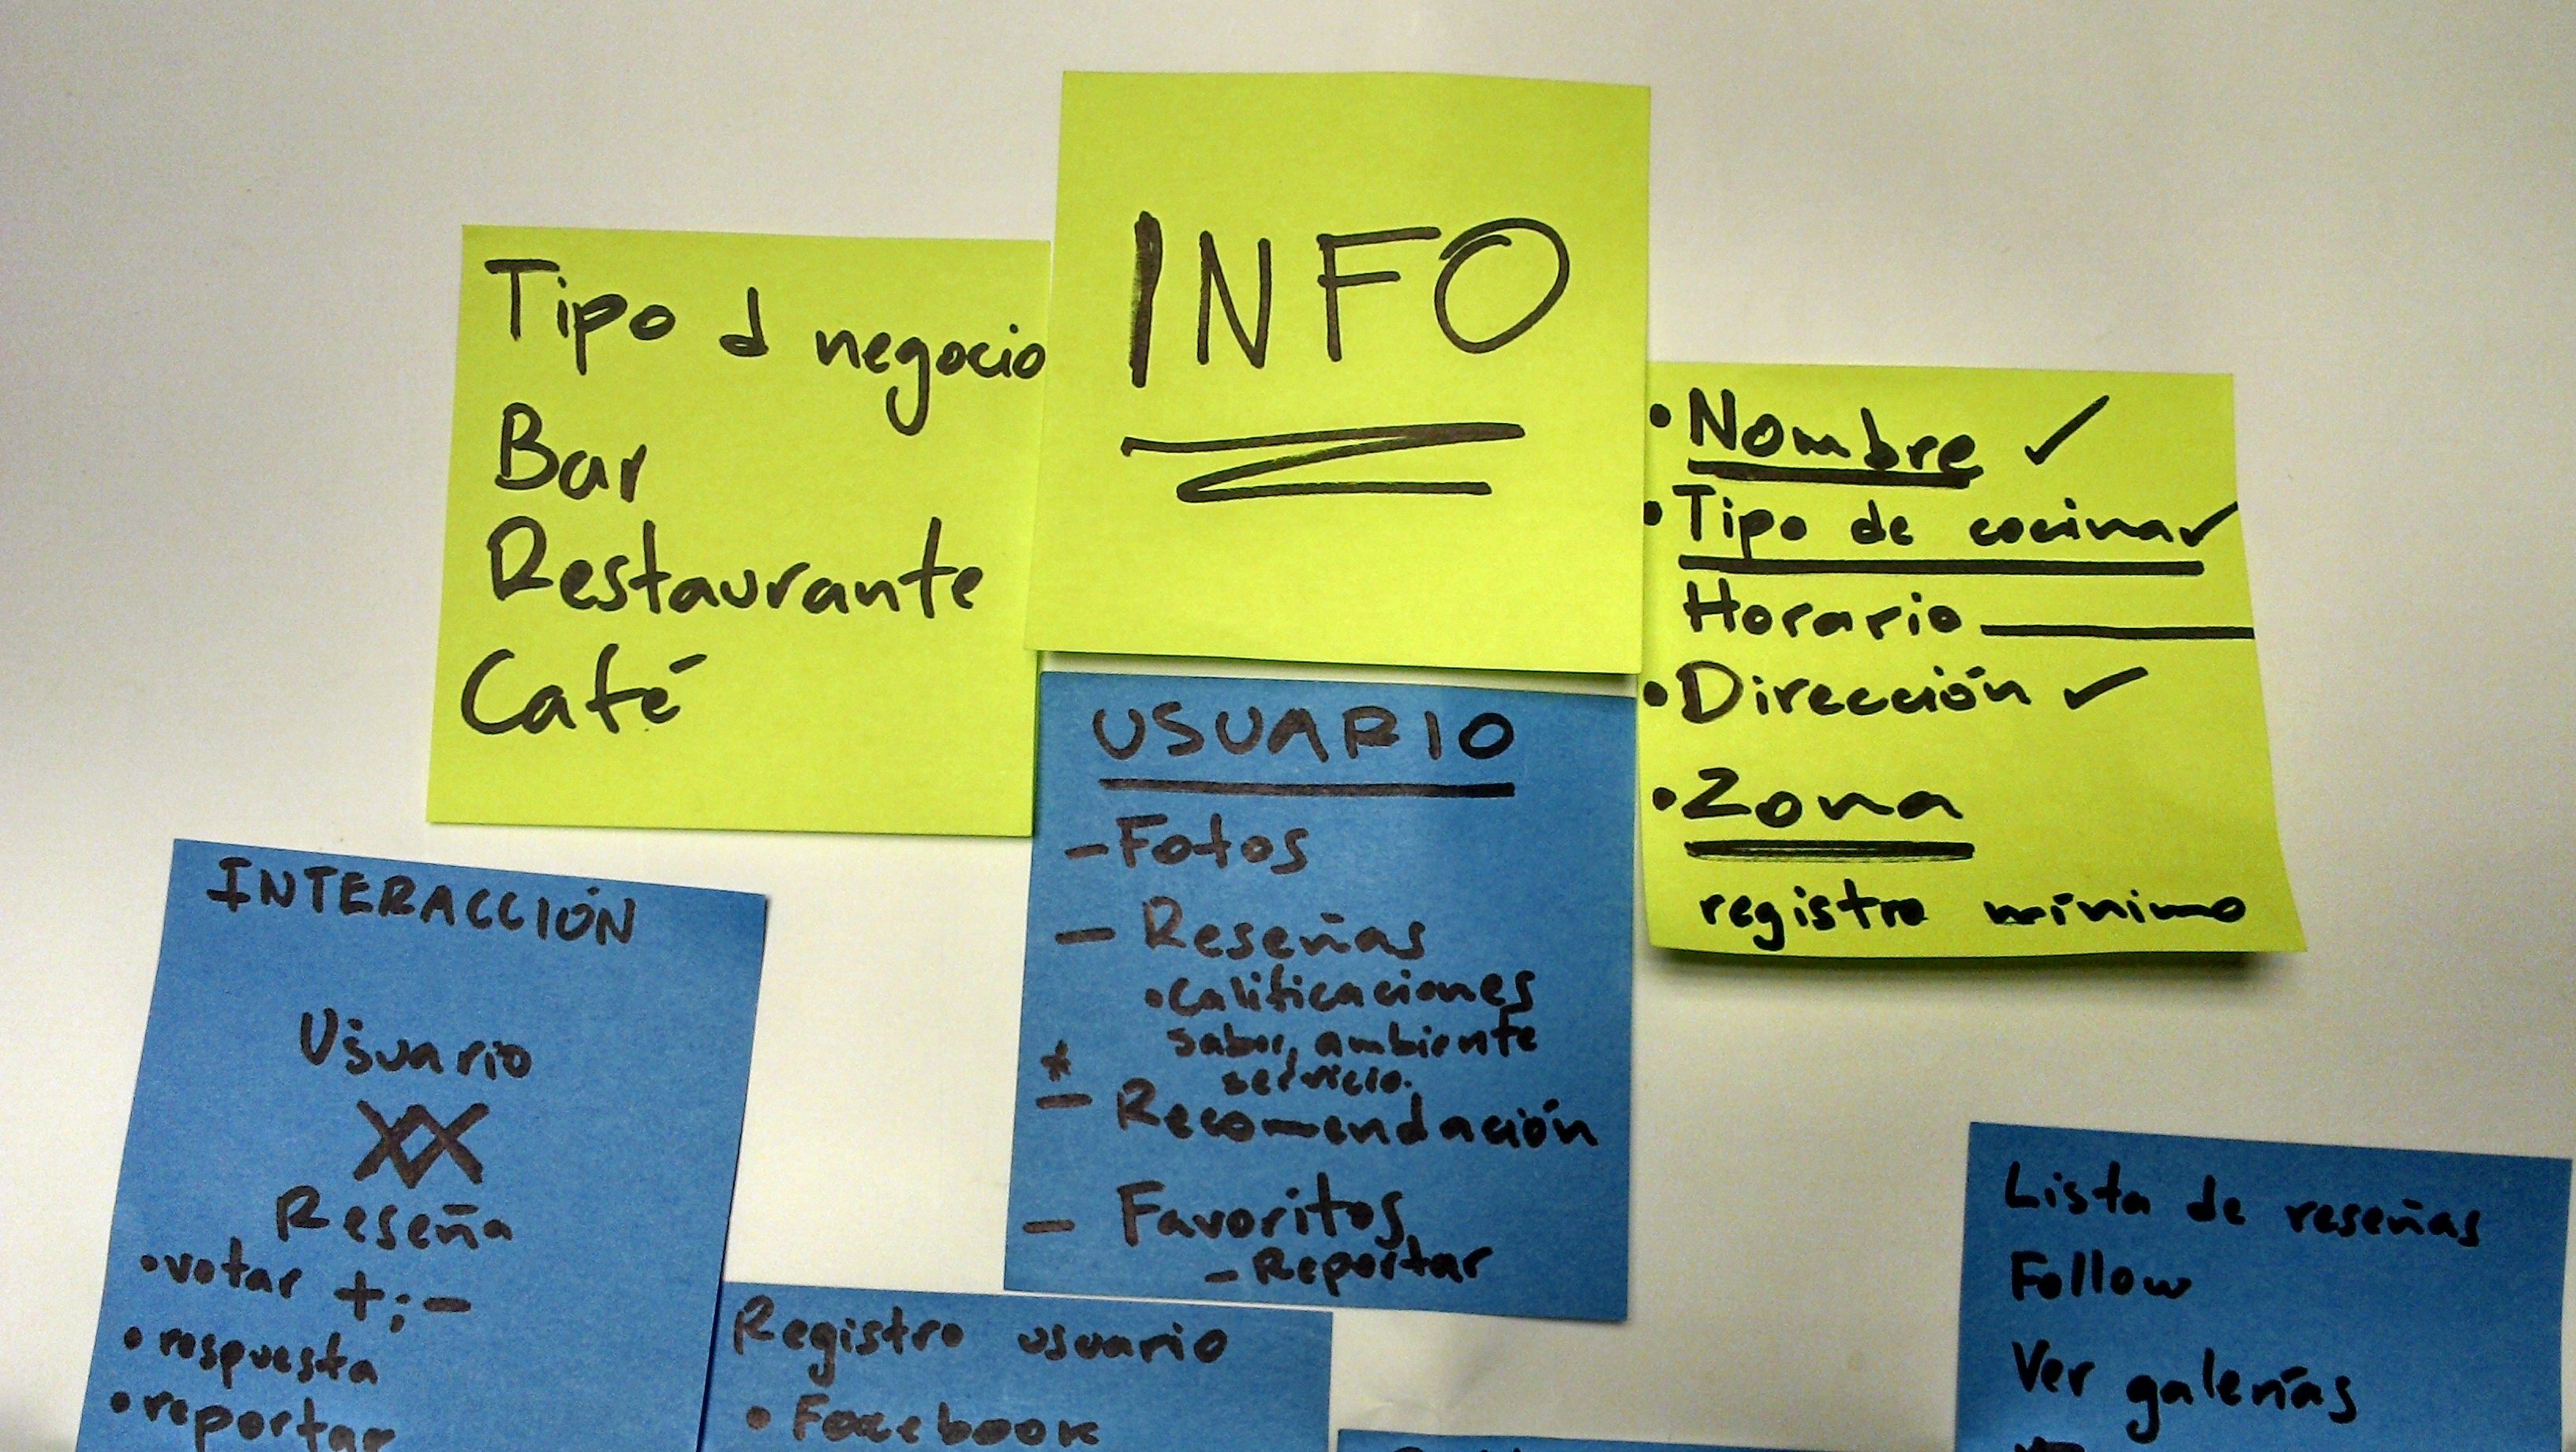 INFO
Tipo d negocio
Bar
Restaurante
Café
• Nombre ✓
• Tipo de cocina ✓
Horario —
• Dirección ✓
• Zona
registro mínimo
USUARIO
– Fotos
– Reseñas
• Calificaciones
sabor, ambiente
servicio.
*
– Recomendación
– Favoritos
– Reportar
INTERACCIÓN
Usuario
Reseña
• votar +;–
• respuesta
• reportar
Registro usuario
• Facebook
Lista de reseñas
Follow
Ver galerías